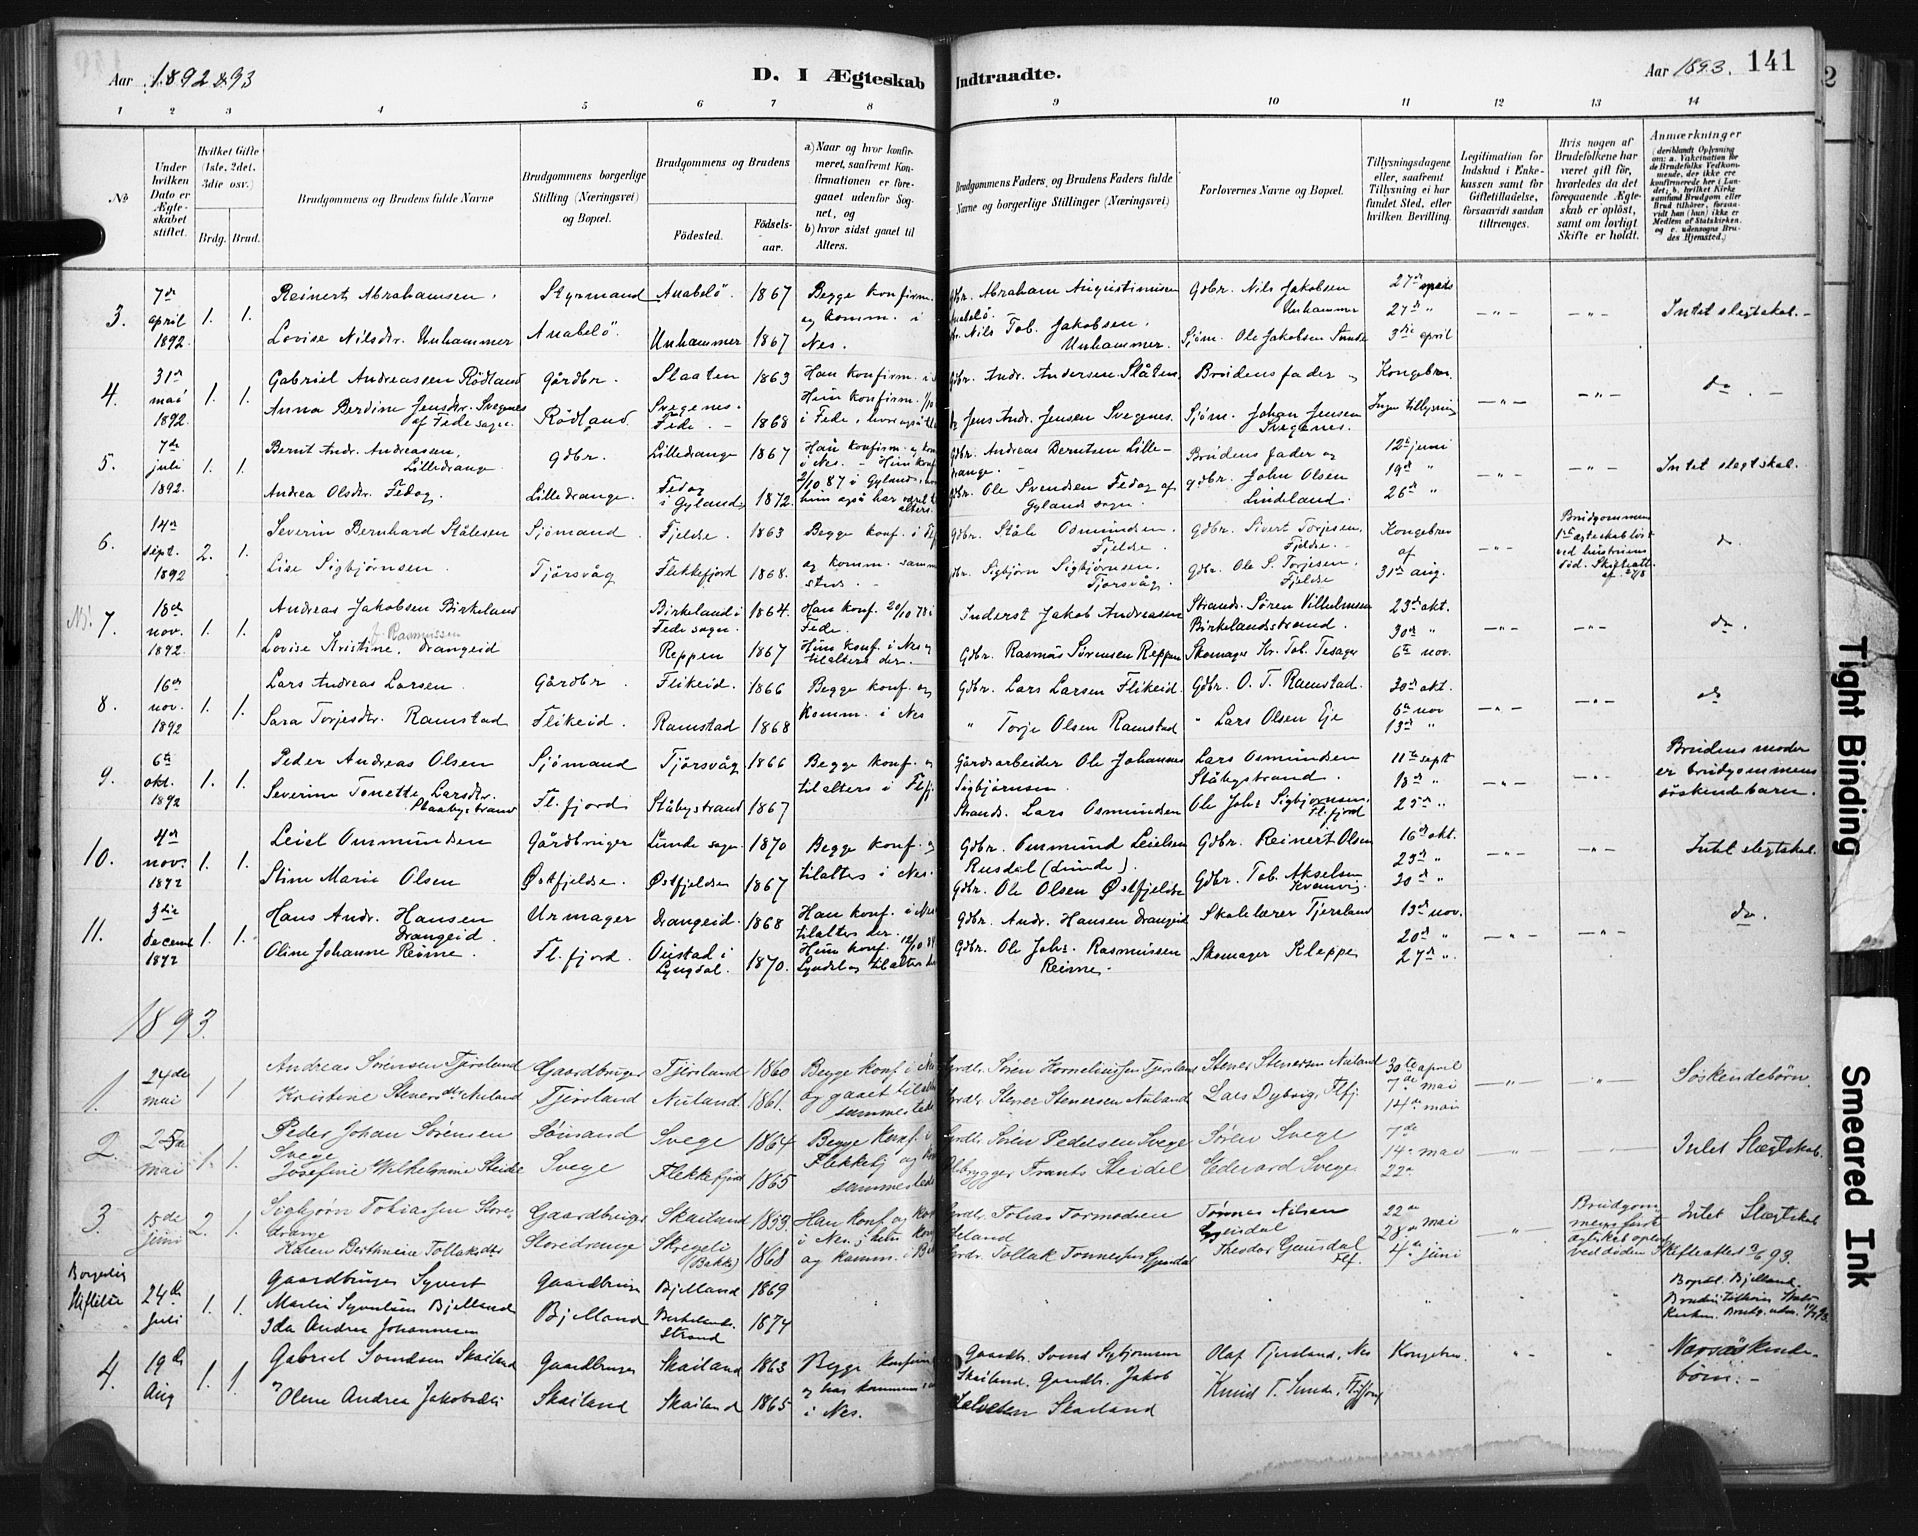 Aar 1892 & 93
D. I Ægteskab Indtraadte.
Aar 1893.
141
1 2 3 4 5 6 7 8 9 10 11 12 13 14
No
Under hvilken Dato er Ægteskabet stiftet.
Hvilket Gifte (1ste, 2det, 3die osv.)
Brdg. Brud.
Brudgommens og Brudens fulde Navne
Brudgommens borgerlige Stilling (Næringsvei) og Bopæl.
Brudgommens og Brudens
Fødested.
Fødselsaar.
a) Naar og hvor konfirmeret, saafremt Konfirmationen er foregaaet udenfor Sognet, og
b) hvor sidst gaaet til Alters.
Brudgommens Faders og Brudens Faders fulde Navne og borgerlige Stillinger (Næringsvei)
Forlovernes Navne og Bopæl.
Tillysningsdagene eller, saafremt Tillysning ei har fundet Sted, efter hvilken Bevilling.
Legitimation for Indskud i Enkekassen samt for Giftetilladelse, forsaavidt saadan tiltrænges.
Hvis nogen af Brudefolkene har været gift før, hvorledes da det foregaaende Ægteskab er opløst, samt om lovligt Skifte er holdt.
Anmærkninger (deriblandt Oplysning om: a. Vakcination for de Brudefolks Vedkommende, der ikke ere konfirmerede her i Landet; b. hvilket Kirkesamfund Brudgom eller Brud tilhører, forsaavidt han (hun) ikke er Medlem af Statskirken, og c. udensogns Brudes Hjemsted.)
3. 7de april 1892 1. 1. Reinert Abrahamsen. Styrmand Anabelö. 1867 Begge konfirm. og komm. i Nes. Gdbr. Abraham Augustinusen Anabelö. Gdbr. Nils Jakobsen Unhammer 27de " -"- -"- Intet slegtskab.
Lovise Nilsdtr. Unhammer Anabelö Unhammer 1867 Nils Tob. Jakobsen. Unhammer. Sjøm. Ole Jakobsen Sunde 3die april
4. 31te mai 1892. 1. 1. Gabriel Andreassen Rödland gårdbr. Slaaten 1863 Han konfirm. i Gdbr. Andr. Andersen Slåten. Brudens fader Kongebrev. -"- -"- do.
Anna Berdine Jensdtr. Svegenes af Fede sogn. Rödland. Svegenes. Fede. 1868 Hun konfirm. i Fede, Jens Andr. Jensen Svegenes. Sjøm. Johan Jensen Svegenes. Ingen tillysning
5. 7de juli 1892. 1. 1. Bernt Andr. Andreasen Lilledrange. gdbr. Lilledrange 1867 Han konfirm. i Nes. - Hun konf. 2/10 87 i Gyland, Gdbr. Andreas Berntsen Lilledrange. Brudens fader og 12te juni 19de " -"- -"- Intet slegtskab.
Andrea Olsdtr. Fedog. Lilledrange. Fedog i Gyland 1872. Gdbr. Ole Svendsen Fedog af Gylands sogn. gdbr. John Olsen Lindeland. 26de "
6. 14de sept. 1892 2. 1. Severin Bernhard Stålesen Sjömand Fjelse. 1863 Begge konf. i Fl og komm. sammesteds. Gdbr. Ståle Osmundsen. Fjelse. Gdbr. Sivert Torjesen. Fjelse. Kongebrev af 31te aug. -"- Brudgommens 1ste ægteskab løst ved hustruens død. Skifteatt. af do.
Lise Sigbjørnsen. Tjörsvåg Flekkefjord 1868. Gdbr. Sigbjørn Sigbjørnsen. Tjorsvåg. Gdbr. Ole S. Torjesen. Fjelse
7. 18de nov. 1892. 1. 1. Andreas Jakobsen Birkeland Birkeland i Fede sogn. 1864. Han konf. 20/10 78 i Fede. Inderst Jakob Andreasen Strands. Sören Vilhelmsen Birkelandstrand. 23de okt. 30te " -"- -"- do.
f. Rasmussen
Lovise Kristine. Drangeid Reppen 1867 Hun konf. i Nes og tilalters der. Gdbr. Rasmus Sørensen Reppen Skomager Kr. Tob. Tesager 6te nov.
8. 16de nov. 1892 1. 1. Lars Andreas Larsen. Gårdbr Flikeid. 1866 Begge konf. og komm. i Nes Gdbr. Lars Larsen Flikeid. Gdbr. O. T. Ramstad. 30te okt. 6te nov -"- -"- do
Sara Torjesdtr. Ramstad Flikeid. Ramstad 1868 " Torje Olsen Ramstad " Lars Olsen Eje 13de "
9. 6te okt. 1892 1. 1. Peder Andreas Olsen Sjömand Tjörsvåg 1866 Begge konf. og tilalters i Flfj. Gårdsarbeider Ole Johannes Sigbjörnsen. Lars Osmundsen Ståbystrand. 11te sept 18de " -"- -"- Brudens moder er brudgommens söskendebarn.
Severine Tonette Larsdtr. Staabystrand Fl. fjord Ståbystrand 1867 Strands. Lars Osmundsen Ole Johs Sigbjørnsen. Fl.fjord 25de "
10. 4de nov. 1892 1. 1. Leiel Ommundsen Gårdbruger Lunde sogn 1870 Begge konf. og tilalters i Nes. Gdbr. Ommund Leielsen Rusdal (Lunde). Gdbr. Reinert Olsen 16de okt. 23de " -"- -"- Intet slegtskab.
Stine Marie Olsen Østfjelse. Østfjelse 1867 Gdbr. Ole Olsen Østfjelse Gdbr. Tob. Akselsen Kvanvig. 30te "
11. 3die decemb 1892 1. 1. Hans Andr. Hansen Drangeid. Urmager Drangeid. 1868 Han konf. i Nes tilalters der. Gdbr. Andr. Hansen Drangeid Skolelærer Tjersland 13de nov. 20de " -"- -"- do.
Oline Johanne Reime. Fl. fjord. Oiestad i Lyngdal. 1870. Hun konf. Gdbr. Ole Johs. Rasmussen Reime. Skomager Kleppe 27de ".
1893.
1. 24de mai 1 1 Andreas Sörensen Tjersland Gaardbruger Tjersland 1860 Begge konf. i Nes og gaaet tilalters sammesteds Søren Korneliussen Tjersland Stener Stenersen Nuland 30te april 7de mai -"- " Söskendebörn.
Kristine Stenersdtr. Nuland Tjersland Nuland. 1861. Stener Stenersen Nuland Lars Dybvig, Flfj. 14de mai
2. 25de mai 1. 1. Peder Johan Sörensen Svege Sömand Svege 1864 Begge konf. i Flekkefj og sammesteds Søren Pedersen Svege Søren Svege 7de 14de mai -"- Intet Slægtskab.
Josefine Wilhelmine Steidel Svege Flekkefjord 1865 Ølbrygger Frants Steidel Edward Svege. 22de
3. juni 2. 1. Sigbjørn Tobiassen Storedrange Gaardbruger Skailand 1853 Han konf og kom i Nes, hun konf og komm. i Tobias Tormodsen Tønnes Nilsen 22de 28de mai -"- Brudgommens første ægteskab opløst ved døden Skifteattest 3/6 93. Intet Slægtskab
Karen Berthine Tollaksdtr Storedrange Skregeli (Bakke) 1868 Tollak Tønnessen Theodor Flf. 4de juni
Borgerlig Stiftelse 24de Juli 1. 1. Gaardbruger Syvert Martin Syvertsen Bjelland Gaardbruger Bjelland Bjelland 1869
Ida Andrea Johannesen Birkelands Strand 1874
Bopæl. Bjelland. Bruden tilhører Stats Kirken.
4. 19de Aug 1. 1. Gabriel Svendsen Skailand Gaardbruger Skailand 1863 Begge konfirm og har kommun i Nes. Gaardb. Svend Sigbjørnsen Skailand. Gaardb. Jakob Olaf Tjersland, Nes Kongebrev. " " Næssöskendebörn.
Olene Andrea Jakobsdtr Skailand Skailand 1865 Skailand Knud T. Sunde, Fl.fjord
Tight Binding
Smeared Ink